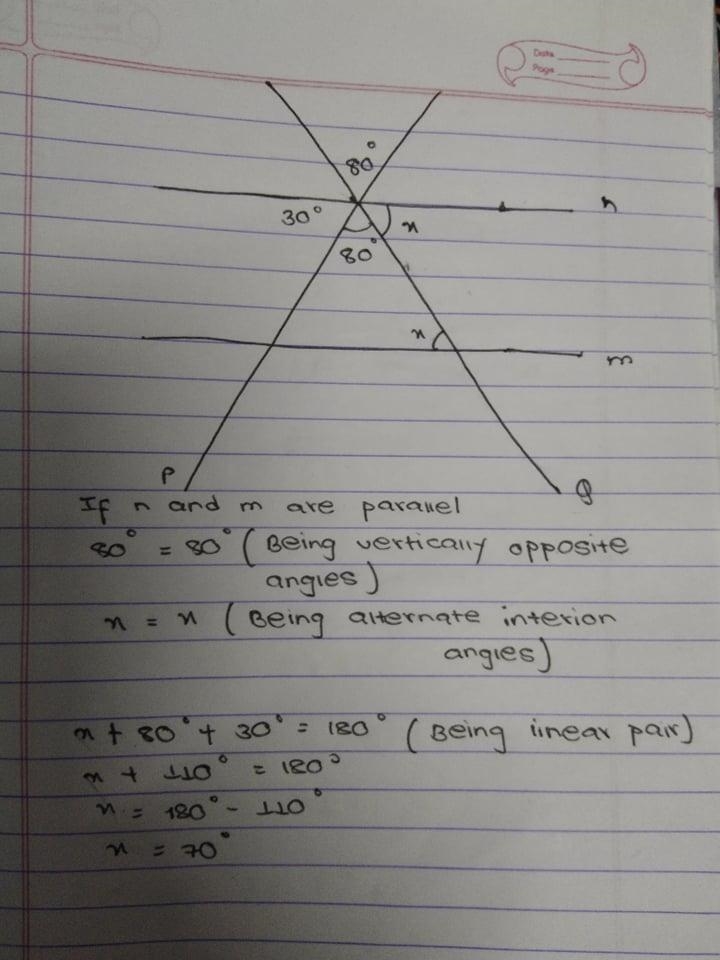 Date
Page
80°
n
30°
x
80°
x
m
P
Q
If n and m are parallel
80° = 80° (Being vertically opposite
angles)
x = x (Being alternate interior
angles)
x + 80° + 30° = 180° (Being linear pair)
x + 110° = 180°
x = 180° - 110°
x = 70°